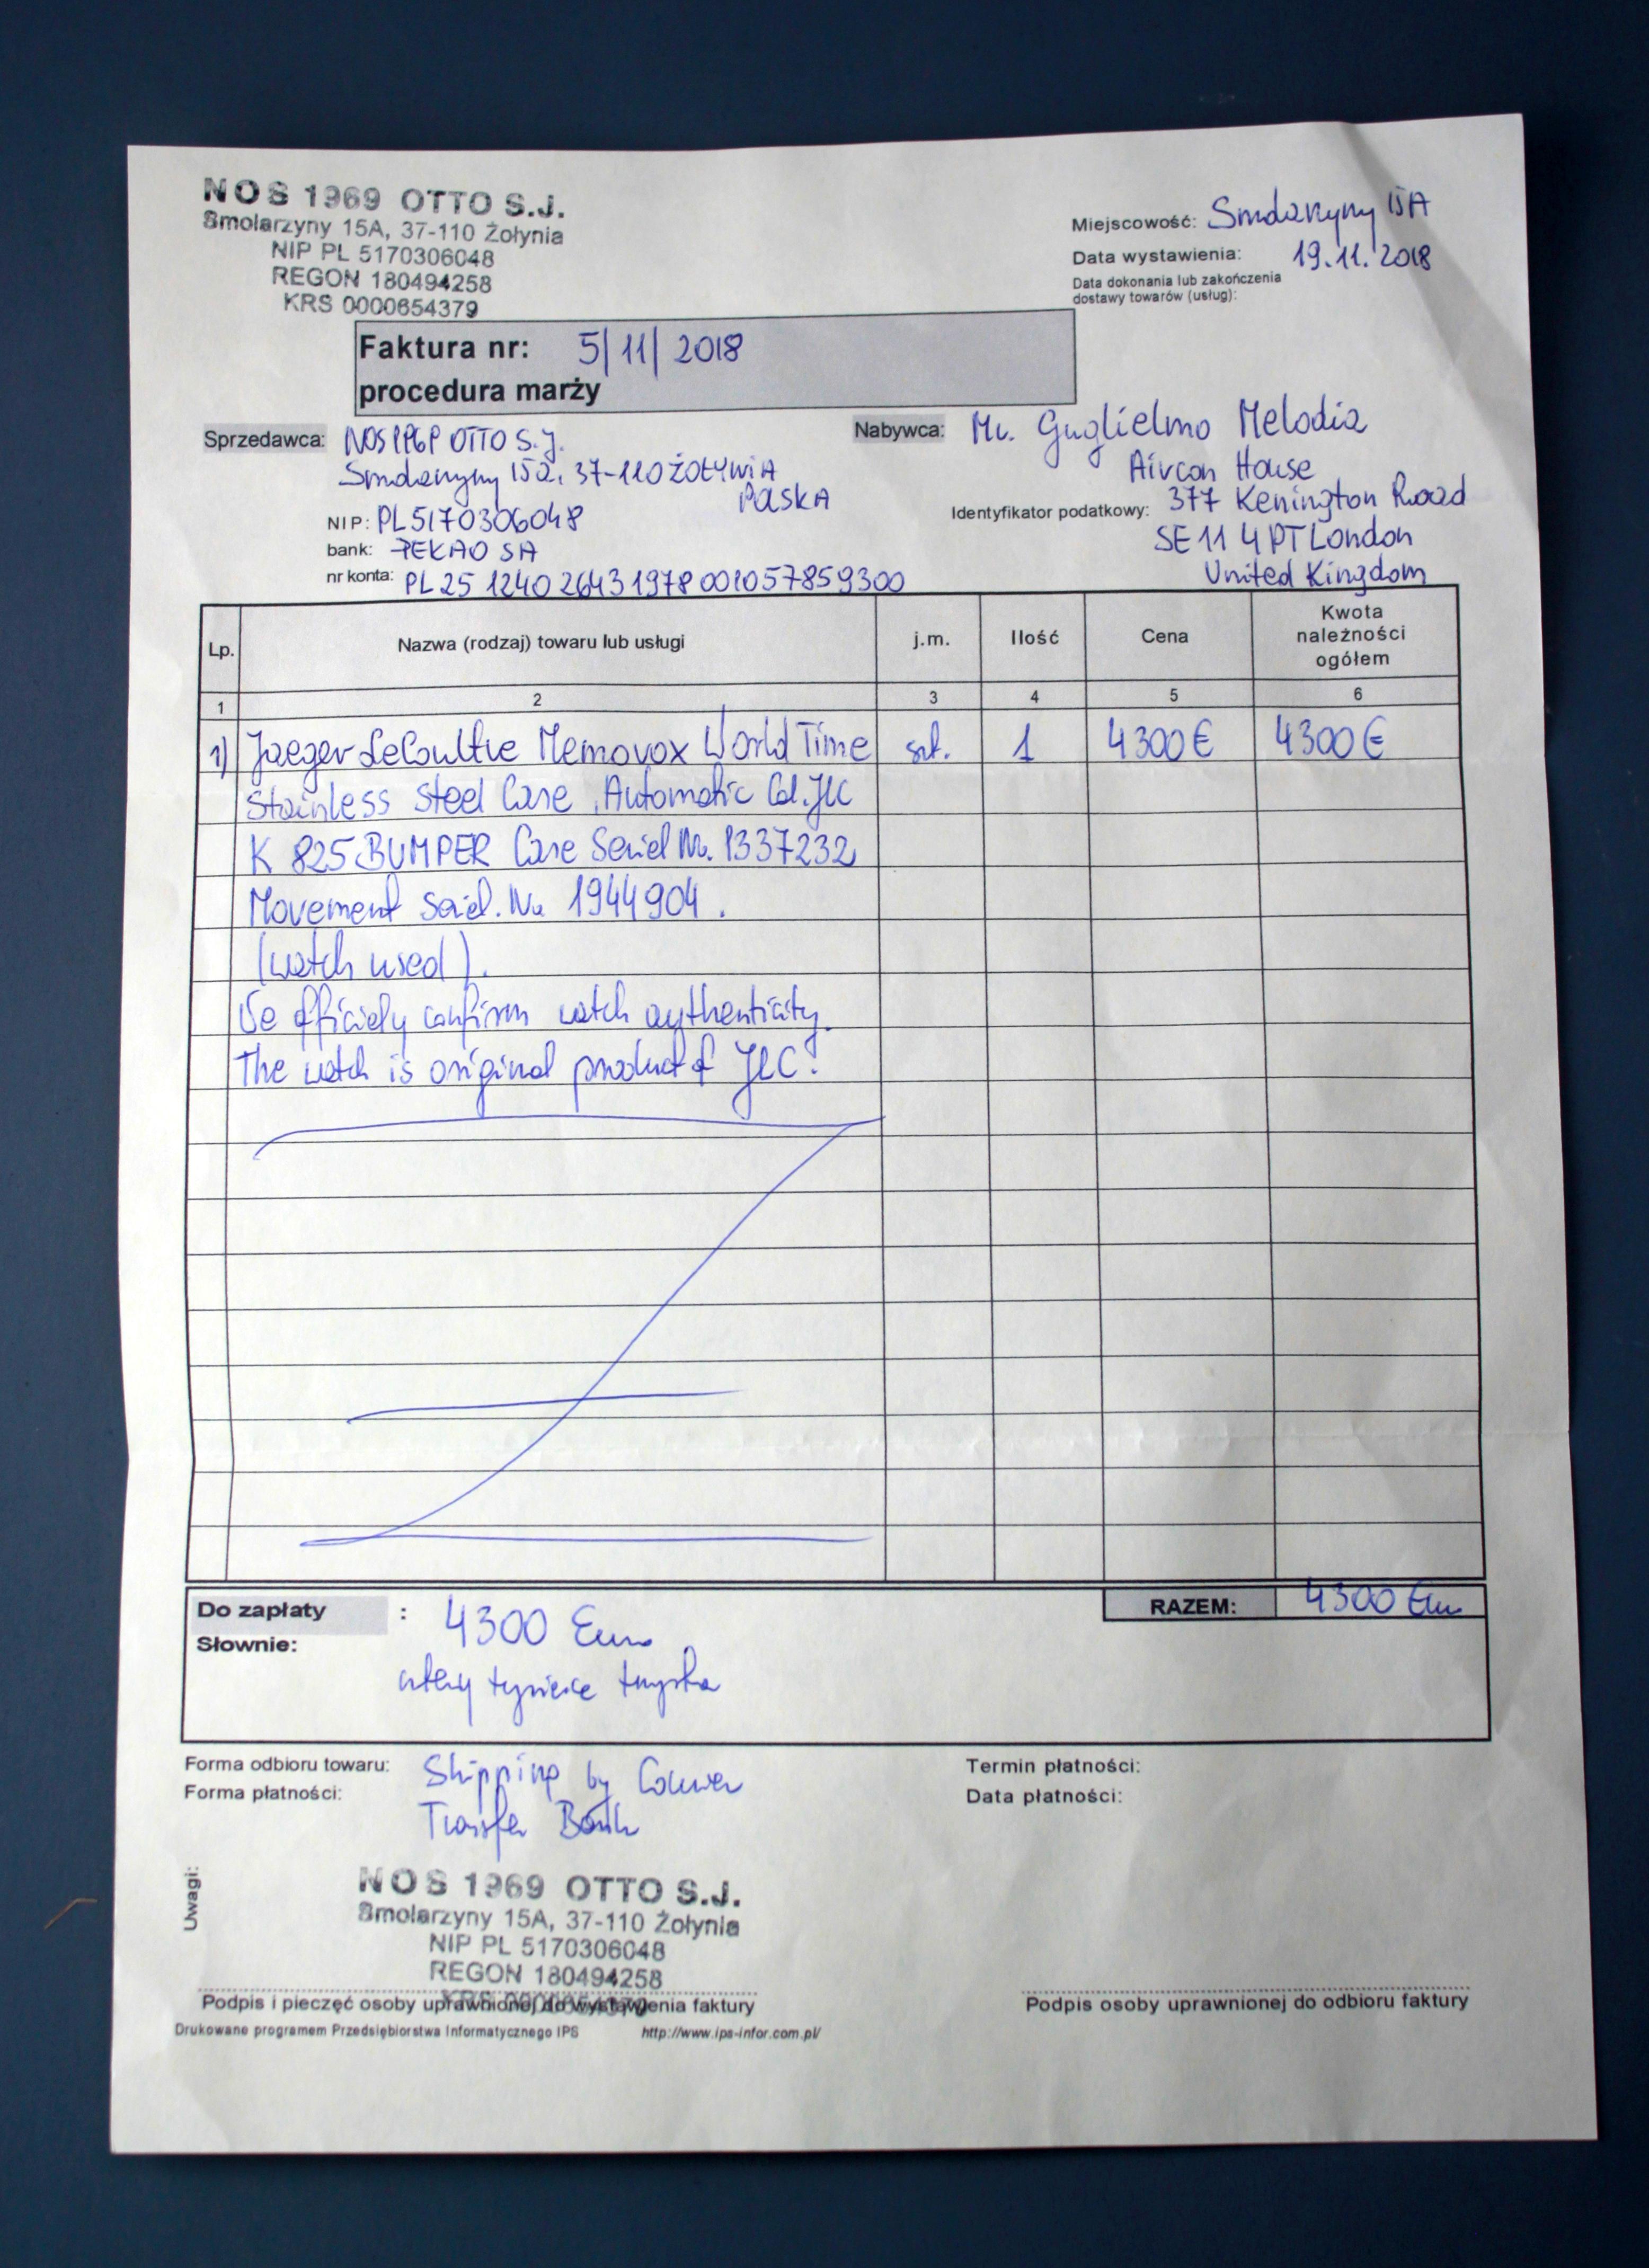 NOS 1969 OTTO S.J.
Smolarzyny 15A, 37-110 Żołynia
NIP PL 5170306048
REGON 180494258
KRS 0000654379
Miejscowość: Smolarzyny 15A
Data wystawienia: 19.11.2018
Data dokonania lub zakończenia
dostawy towarów (usług):
Faktura nr: 5/11/2018
procedura marży
Sprzedawca: NOS 1969 OTTO S.J.
Smolarzyny 15a, 37-110 ŻOŁYNIA
POLSKA
NIP: PL5170306048
bank: PEKAO SA
nr konta: PL 25 1240 2643 1978 0010 5785 9300
Nabywca: Mr. Guglielmo Melodia
Aircon House
Identyfikator podatkowy: 377 Kenington Road
SE11 4PT London
United Kingdom
Lp. Nazwa (rodzaj) towaru lub usługi j.m. Ilość Cena Kwota należności ogółem
1 2 3 4 5 6
1) Jaeger LeCoultre Memovox World Time szt. 1 4300€ 4300€
Stainless Steel Case, Automatic Cal. JLC
K 825 BUMPER Case Seriel Nr. 1337232
Movement Seriel. Nr 1944904.
(watch used).
We officiely confirm watch authenticity.
The watch is original product of JLC!
RAZEM: 4300 Euro
Do zapłaty : 4300 Euro
Słownie: cztery tysiące trzysta
Forma odbioru towaru: Shipping by Courier
Forma płatności: Transfer Bank
Termin płatności:
Data płatności:
Uwagi:
NOS 1969 OTTO S.J.
Smolarzyny 15A, 37-110 Żołynia
NIP PL 5170306048
REGON 180494258
KRS 0000654379
Podpis i pieczęć osoby uprawnionej do wystawienia faktury
Podpis osoby uprawnionej do odbioru faktury
Drukowane programem Przedsiębiorstwa Informatycznego IPS http://www.ips-infor.com.pl/